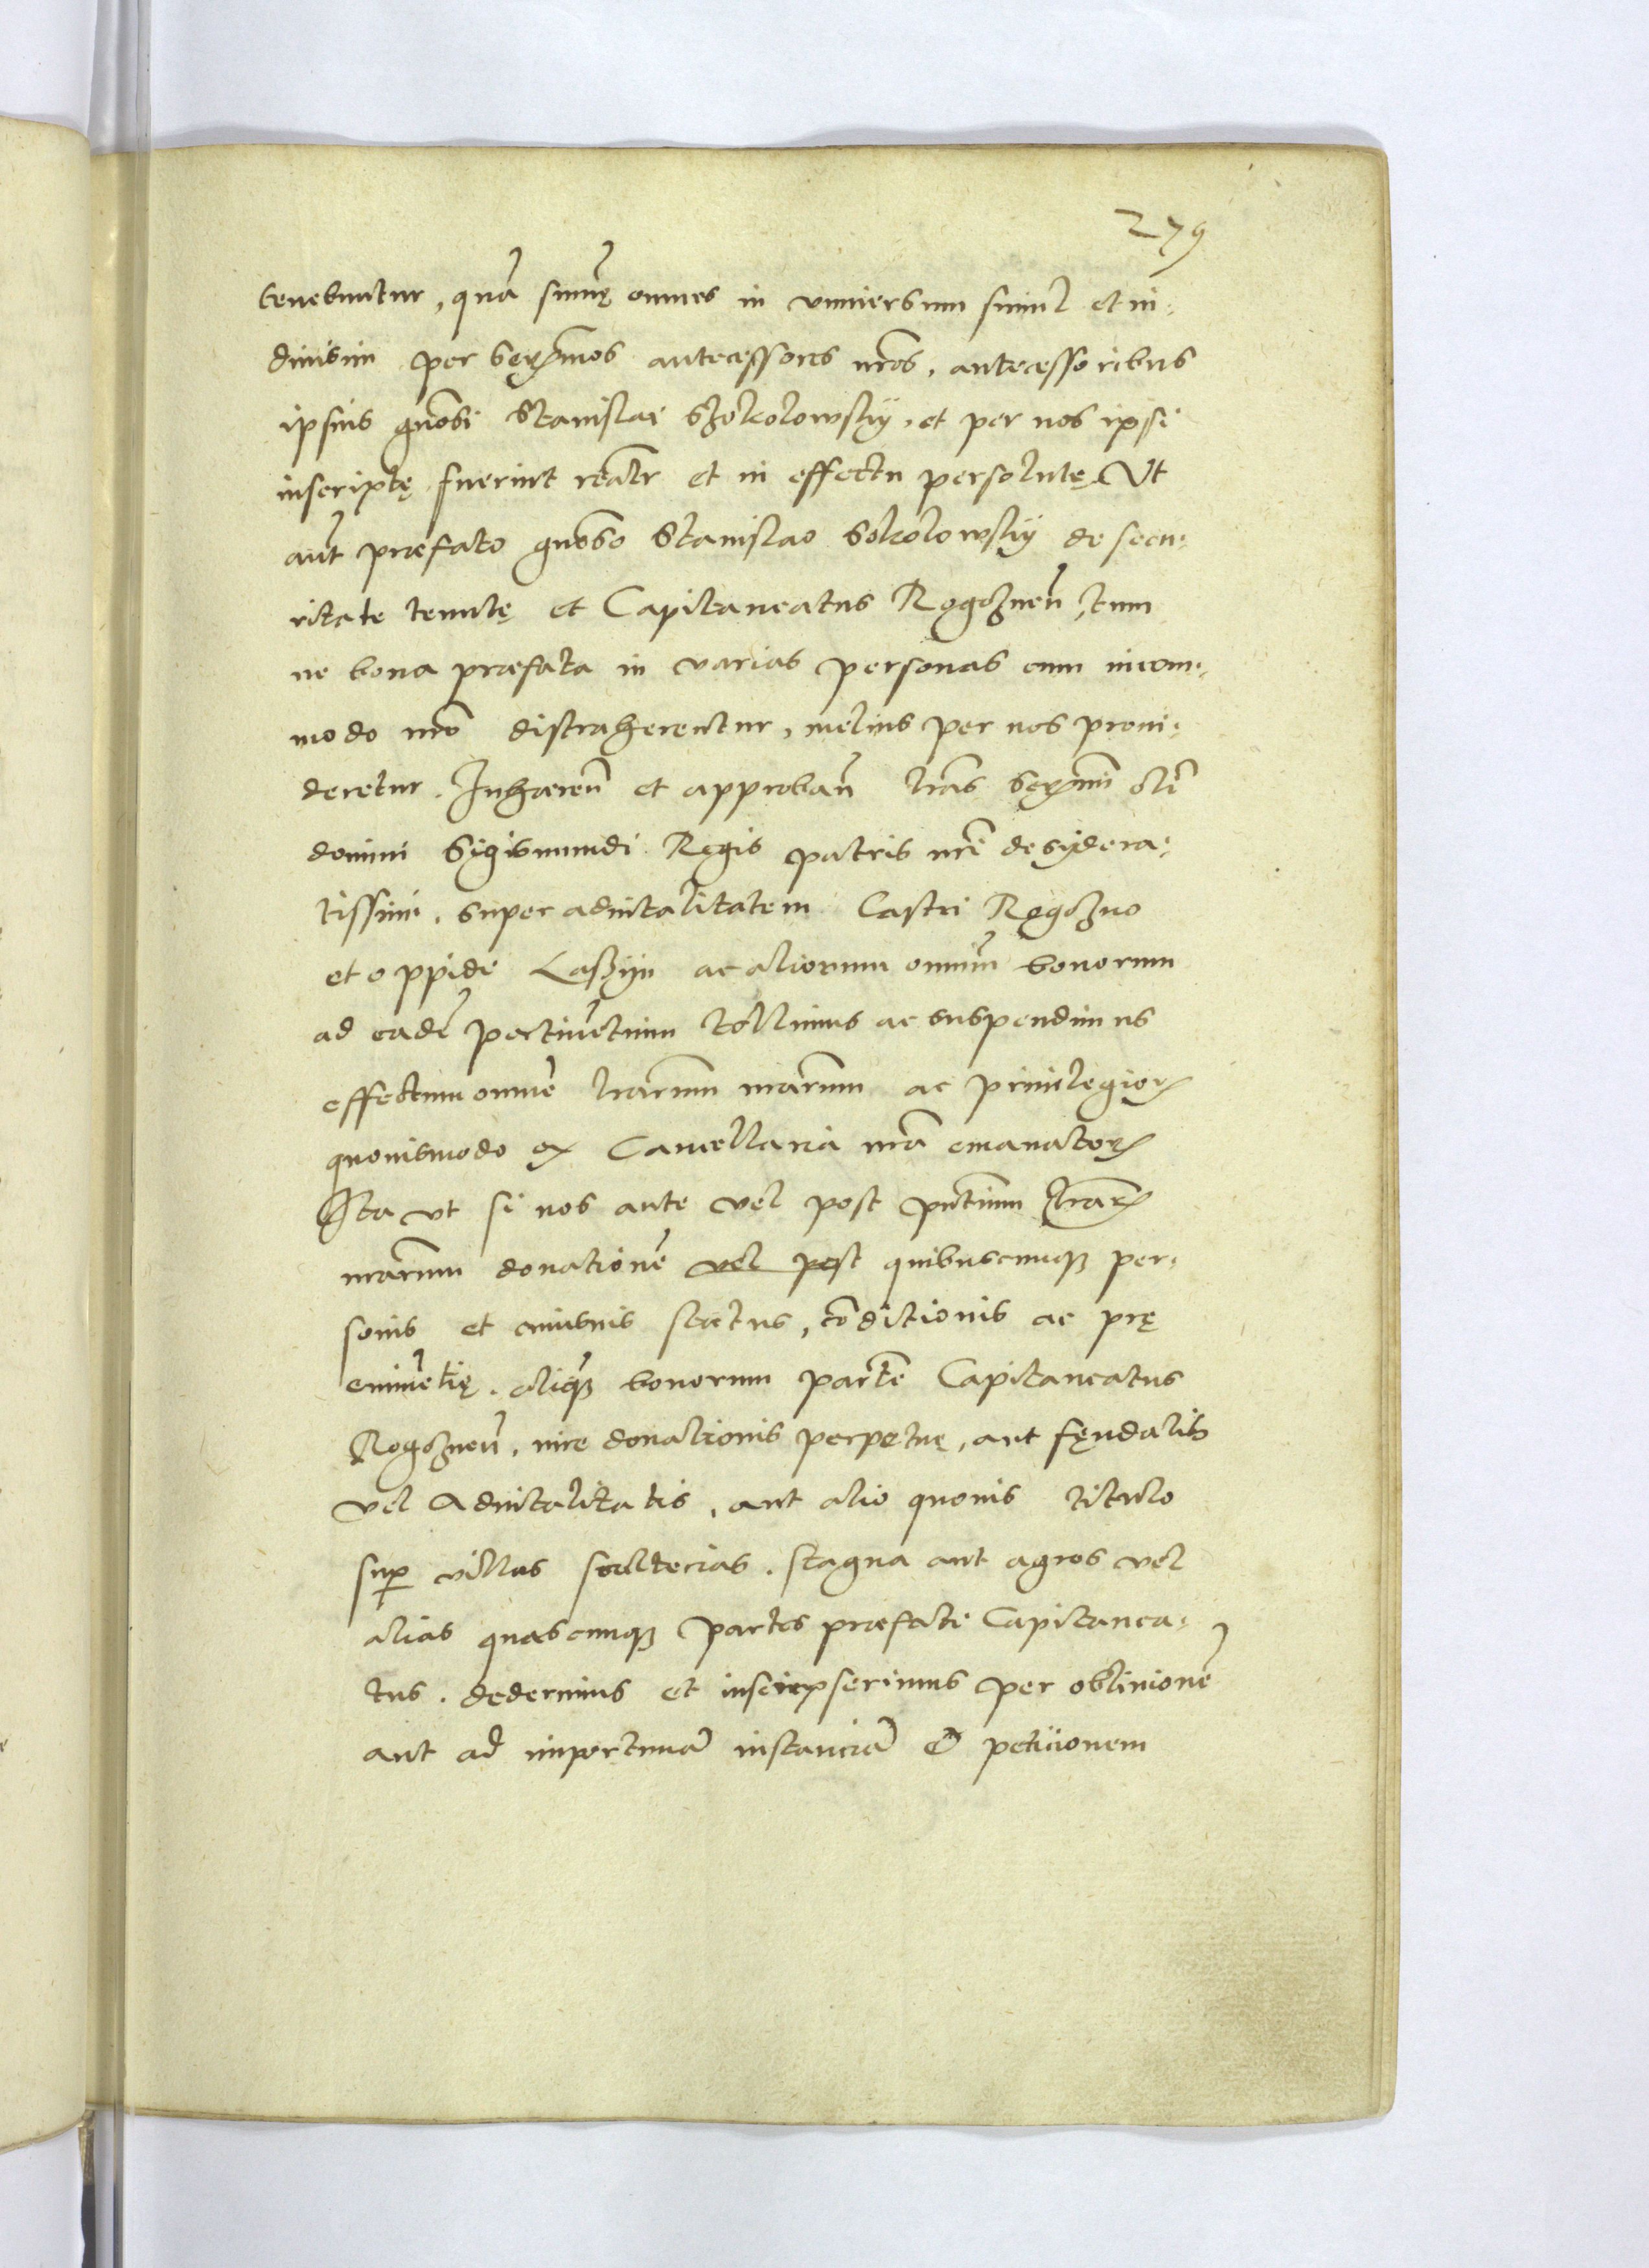 279
tenebuntur, quā summę omnes in vniuersum simul et in,
diuisim per serx̄mos antecessores nr̄os, antecessoribus
ipsius gn̄osi Stanislai Szokolowsky, et per nos ipsi
inscriptę fuerint realr̄ et in effectu persolutę. Vt
aūt præfato gn̄oso Stanislao Sokolowsky de secu,
ritate tenutę et Capitaneatus Rogoznen̄, tum
ne bona præfata in varias personas cum incom,
modo nr̄o distraherentur, melius per nos proui,
deretur. Inhæren̄ et approban̄ lr̄as serx̄mi olī
domini Sigismundi Regis patris nr̄i desydera,
tissimi, super aduitalitatem Castri Rogozno
et oppidi Laszyn ac aliorum omniū bonorum
ad eadē pertinētium tollimus ac suspendimus
effectum omnē lr̄arum nr̄arum ac priuilegiorꝝ
quouismodo ex Cancellaria nr̄a emanatorꝝ
Ita vt si nos ante vel post pn̄tium lr̄arꝝ
nr̄arum donationē vel post quibuscunqꝫ per,
sonis et cuiusuis status, cōditionis ac prę
eminētię, aliqꝫ bonorum partē Capitaneatus
Rogoznen̄, iure donationis perpetuę, aut fęudalis
vel Aduitalitatis, aut alio quouis titulo
suꝑ villas scultecias, stagna aut agros vel
alias quascunqꝫ partes præfati Capitanea,
tus, dederimus et inscripserimus per obliuionē
aut ad importunā instanciā & peticionem